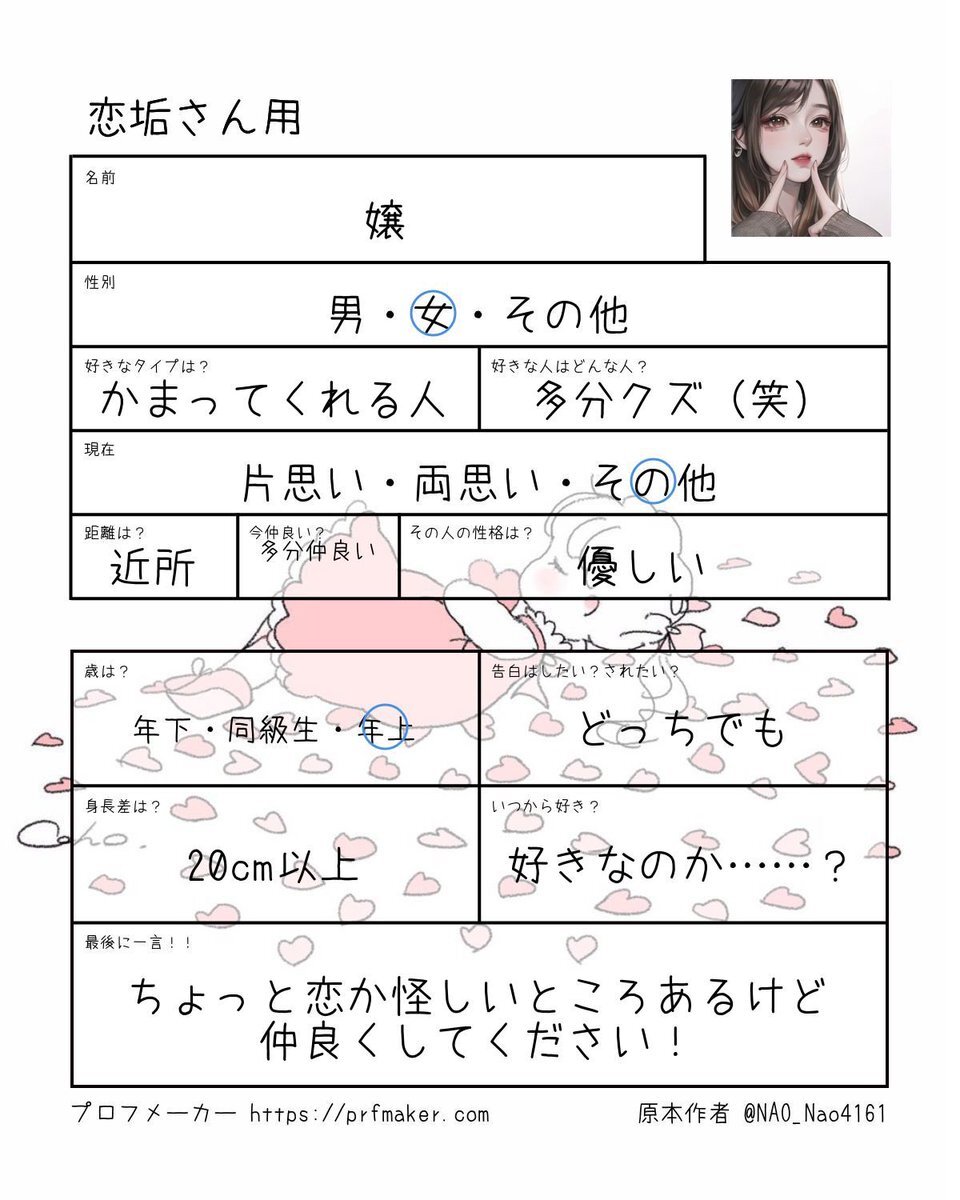 恋垢さん用
名前
嬢
性別
男・女・その他
好きなタイプは？
かまってくれる人
好きな人はどんな人？
多分クズ（笑）
現在
片思い・両思い・その他
距離は？
近所
今仲良い？
多分仲良い
その人の性格は？
優しい
歳は？
年下・同級生・年上
告白はしたい？されたい？
どっちでも
身長差は？
20cm以上
いつから好き？
好きなのか……？
最後に一言！！
ちょっと恋か怪しいところあるけど
仲良くしてください！
プロフメーカー https://prfmaker.com
原本作者 @NAO_Nao4161